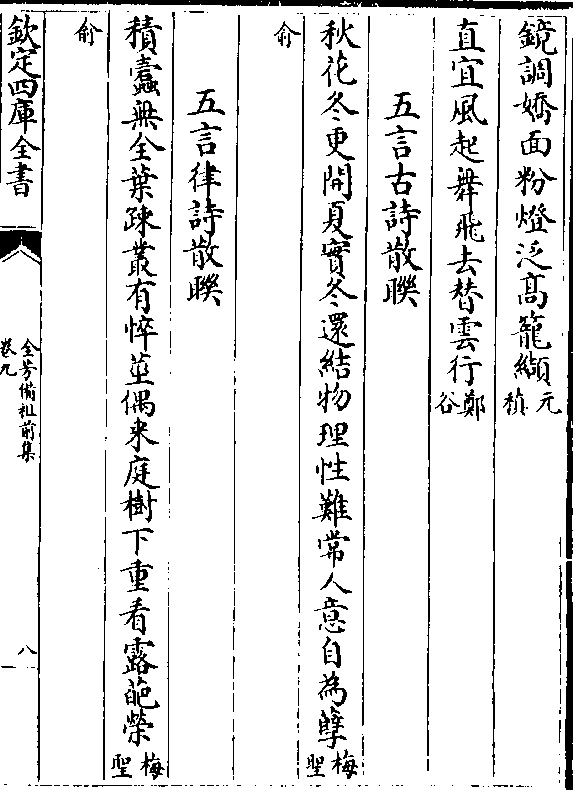 鏡調嬌面粉燈泛髙籠纈元稹
直宜風起舞飛去替雲行鄭谷
五言古詩散聨
秋花冬更開夏實冬還結物理性難常人意自為孽梅聖
俞
五言律詩散聨
積蠧無全葉踈叢有悴莖偶来庭樹下重看露葩榮梅聖
俞
欽定四庫全書
全芳備祖前集
卷九
八